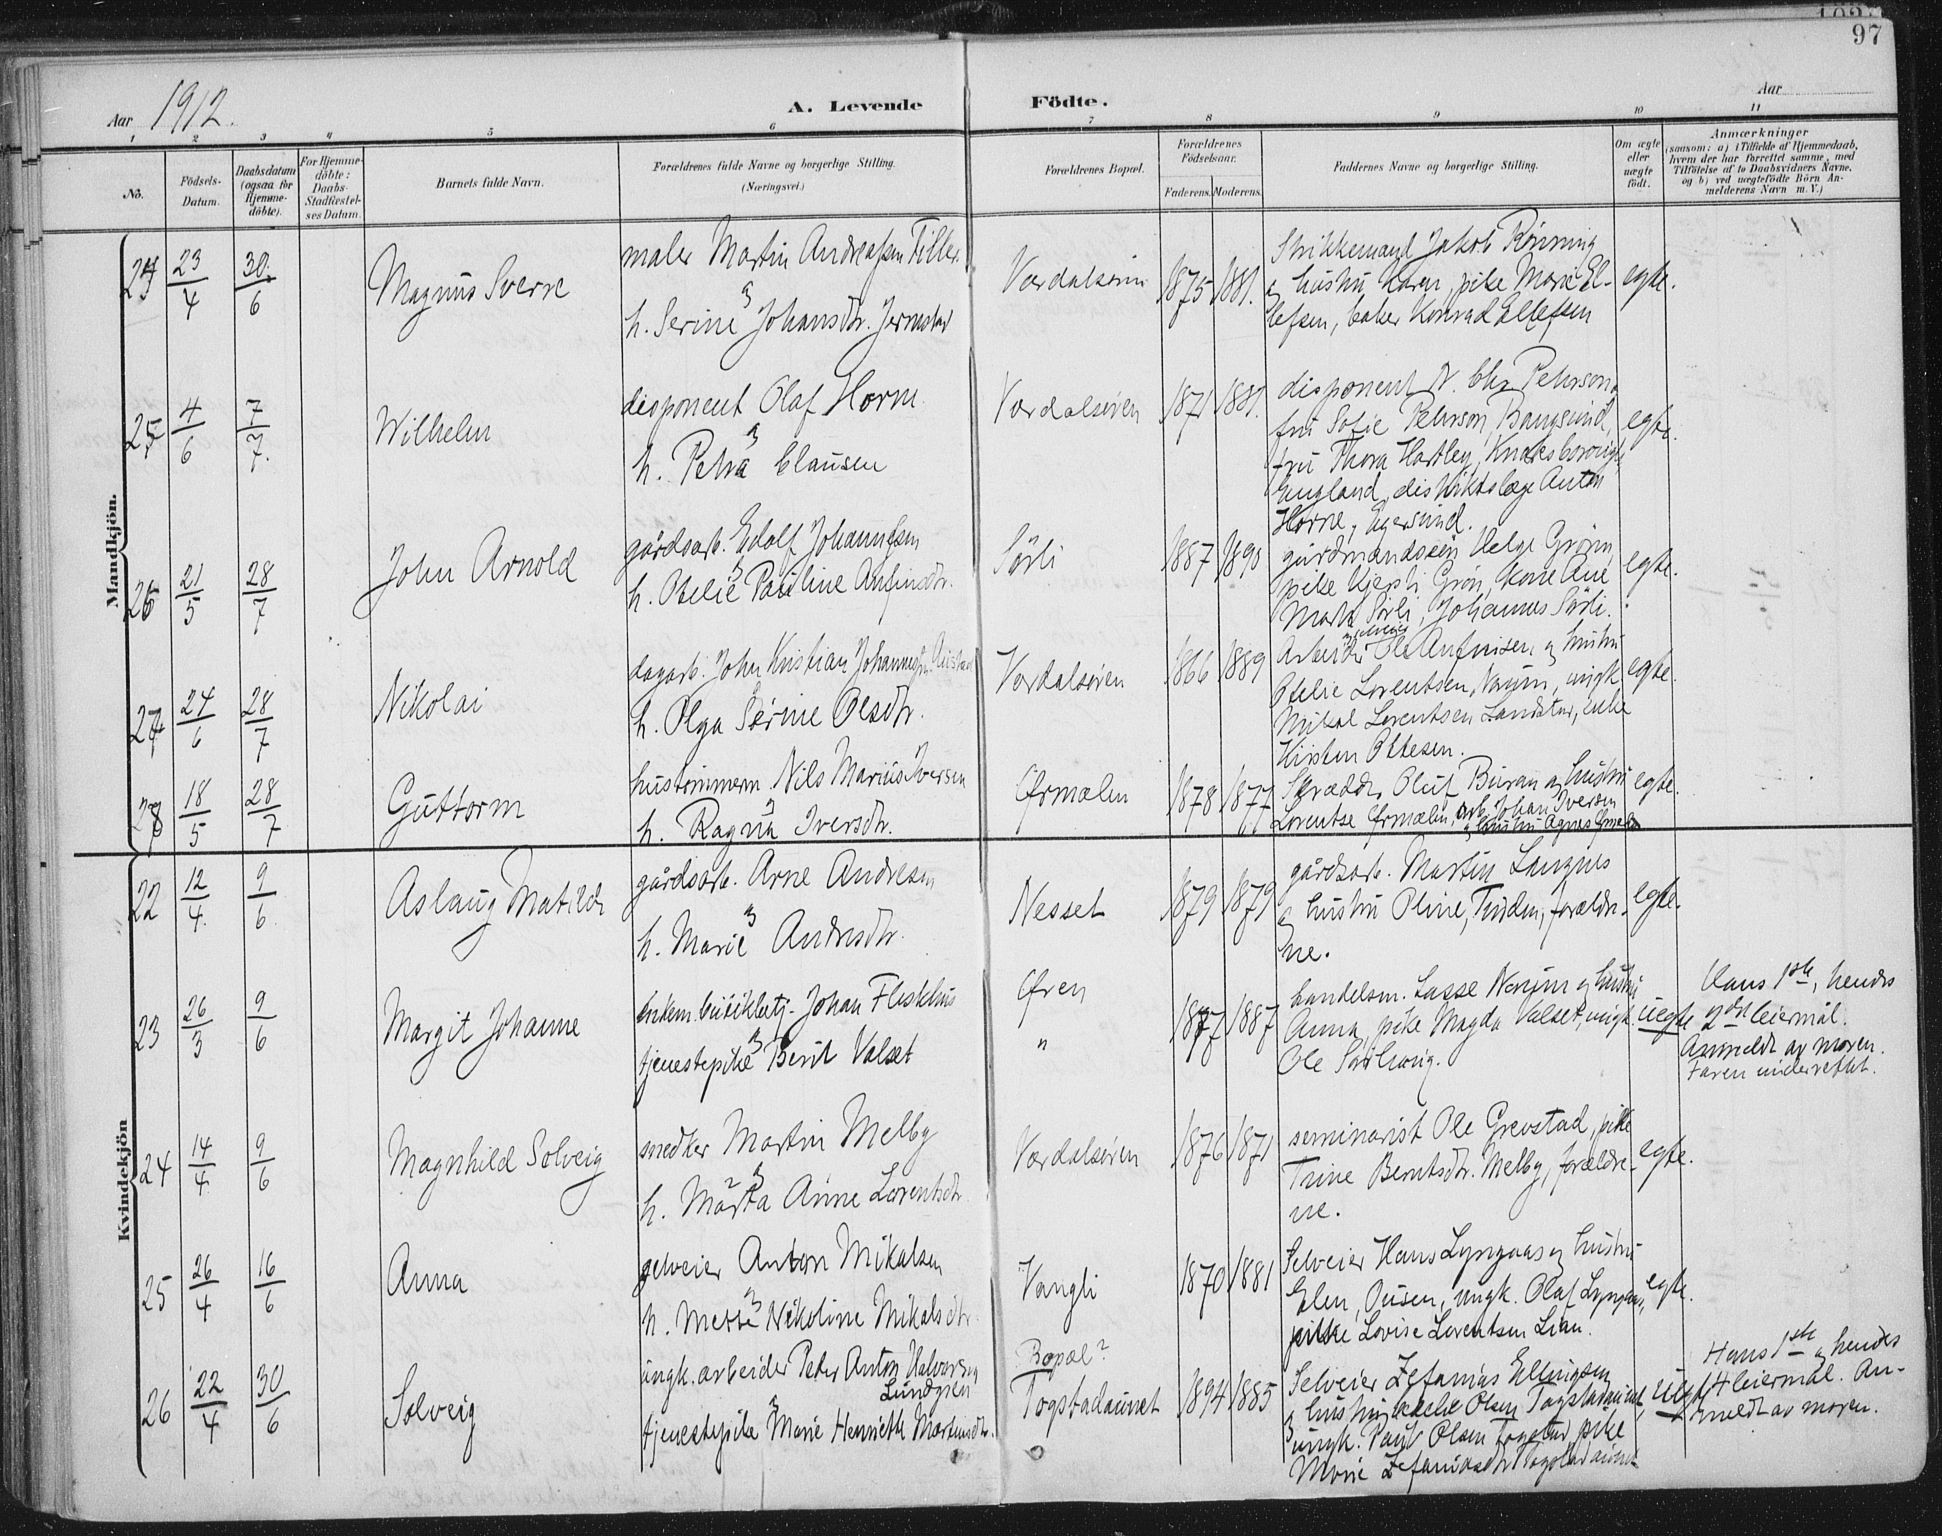 97
Aar 1912.
A. Levende Födte.
Aar
1 2 3 4 5 6 7 8 9 10 11
No.
Födsels-Datum.
Daabsdatum (ogsaa for Hjemme-döbte).
For Hjemme-döbte: Daabs-Stadfæstel-ses Datum.
Barnets fulde Navn.
Forældrenes fulde Navne og borgerlige Stilling.
(Næringsvei.)
Forældrenes Bopæl.
Forældrenes Födselsaar.
Faderens. Moderens.
Faddernes Navne og borgerlige Stilling.
Om ægte eller uægte födt.
Anmærkninger
(saasom: a) i Tilfælde af Hjemmedaab,
hvem der har forrettet samme, med
Tilföielse af to Daabsvidners Navne.
og b) ved uægtefödte Börn An-
melderens Navn m. V.)
Mandkjön.
23/4 30/6 Magnus Sverre
maler Martin Andreassen Tiller
og
h. Serine Johansdtr. Jermstad
Værdalsøren 1875 1881.
Jakob Rönning
og hustru Karen, pike Marie El-
lefsen, baker Konrad Ellefsen
egte.
25 4/6 7/7. Wilhelm
disponent Olaf Horne
og
h. Petra Clausen
Værdalsøren 1871 1881.
disponent N. Chr. Pehrson,
fru Sofie Pehrson, Bangsund,
fru Thora Hartley, Knaresborough
England, distriktslæge Anton
Horne, Egersund.
egte.
26 21/5 28/7 John Arnold
gårdsarb. Edolf Johannessen
og
h. Otelie Pauline Anfinsdtr.
Sörli 1887
gårdmandssön Helge Grönn,
pike Kjersti Grön, kone Ane
Marta Sörli, Johannes Sörli.
egte.
27 24/6 28/7 Nikolai
dagarb. John Kristian Johannessen
h. Olga Serine Olsdtr.
Værdalsøren 1866 1889
Arbeider Ole Anfinsen og hustru
Otelie Lorentsen, ungk.
Mikal Lorentsen Landstad, enke
Kirsten Ottesen.
egte.
28 18/5 28/7 Guttorm
hustømmerm. Nils Marius Iversen
og
h. Ragna Iversdtr.
Ørmælen 1878 1877
Skrædder Oluf Buran og hustru
Lorentse Ørmælen, arb. Johan Iversen
og hustru Agnes Ørmelen
egte.
Kvindekjön
22 12/4. 9/6. Aslaug Matilde
gårdsarb. Arne Andresen
og
h. Marie Andrsdtr.
Nesset 1879 1879
gårdsarb. Martin Langnes
og hustru Oline, Tinden, forældre-
ne.
egte.
23 26/3 9/6 Margit Johanne
enkem. butikbetj. Johan Fleskhus
og
tjenestepike Berit Valset
Øren
"
1877 1887
handelsm. Lasse Næssjm og hustru
Anna, pike Magda Valset, ungk.
Ole
uegte
Hans 1ste, hendes
2det leiermål.
Anmeldt av moren.
Faren underrettet.
24 14/4. 9/6 Magnhild Solveig
snedker Martin Melby
og
h. Marta Anne Lorentsdtr.
Værdalsøren 1876 1871
seminarist Ole Grevstad, pike
Trine Berntsdtr. Melby, forældre-
ne.
egte.
25 26/4 16/6 Anna
selveier Anton Mikalsen
og
h. Mette Nikoline Mikalsdtr.
Vangli 1870 1881
Selveier Hans Lyngaas og hustru
Elen, Ousen, ungk. Olaf Lyngaas,
pike Lovise Lorentsen Lian.
egte.
26 22/4 30/6 Solveig
ungk. arbeider Peter Anton Halvorsen
Lundgren
og
tjenestepike Marie Henriette Martinsdtr.
Bopæl?
Togstadaunet 1894 1885
Selveier Zefanias Ellingsen
og hustru Olsen Togstadaunet,
ungk. Paul Olsen Togstad, pike
Marie Zefaniasdtr. Togstadaunet
uegte
Hans 1ste og hendes
4 leiermål. An-
meldt av moren.